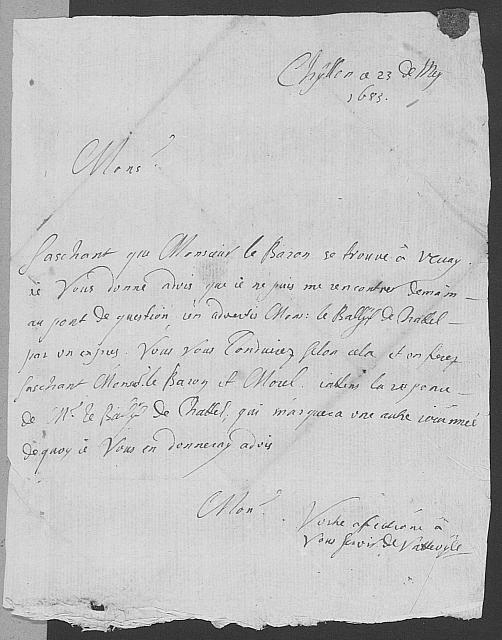 Chyllon ce 23 de May
1683.
Mons.r
Saschant que Monsieur le Baron se trouve à Vevay
ie Vous donne advis que ie ne puis me rencontrer demain
au pont de question, en advertis Mons: le Ballif de Chablel
par un expres. Vous Vous Conduirez selon cela et en ferez
saschant Mons.r le Baron et Morel. la response
de M.r le Ballif de Chablel, qui marquera une autre iournée
de quoy ie Vous en donneray advis
Mon.r
Vostre affectioné à
Vous servir de Vatteville